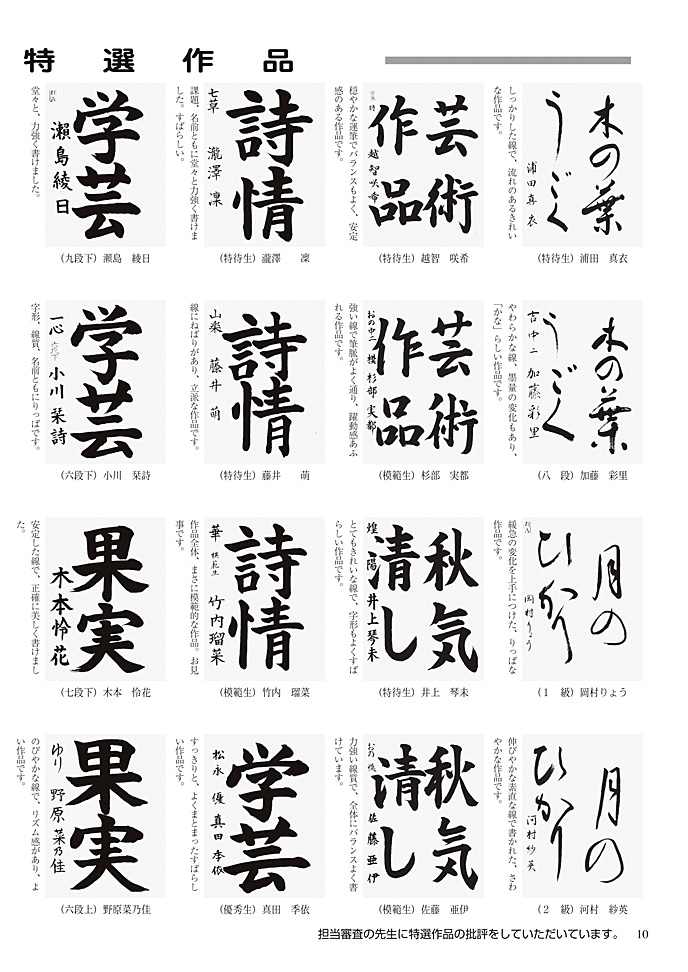 特選作品
木の葉
うごく
浦田真衣
しっかりした線で、流れのあるきれい
な作品です。
（特待生）浦田　真衣
芸術
作品
越智咲希
穏やかな運筆でバランスもよく、安定
感のある作品です。
（特待生）越智　咲希
詩情
七草　瀧澤凜
課題、名前ともに堂々と力強く書けま
した。すばらしい。
（特待生）瀧澤　凜
学芸
瀬島綾日
堂々と、力強く書けました。
（九段下）瀬島　綾日
木の葉
うごく
吉中二　加藤彩里
やわらかな線、墨量の変化もあり、
「かな」らしい作品です。
（八　段）加藤　彩里
芸術
作品
おの中二　模　杉部実都
強い線で筆脈がよく通り、躍動感あふ
れる作品です。
（模範生）杉部　実都
詩情
藤井萌
線にねばりがあり、立派な作品です。
（特待生）藤井　萌
学芸
一心　六段下　小川栞詩
字形、線質、名前ともにりっぱです。
（六段下）小川　栞詩
月の
ひかり
岡村りょう
緩急の変化を上手につけた、りっぱな
作品です。
（１　級）岡村りょう
秋気
清し
煌陽　井上琴未
とてもきれいな線で、字形もよくすば
らしい作品です。
（特待生）井上　琴未
詩情
華　模範生　竹内瑠菜
作品全体、まさに模範的な作品。お見
事です。
（模範生）竹内　瑠菜
果実
木本怜花
安定した線で、正確に美しく書けまし
た。
（七段下）木本　怜花
月の
ひかり
河村紗英
伸びやかな素直な線で書かれた、さわ
やかな作品です。
（２　級）河村　紗英
秋気
清し
佐藤亜伊
力強い線質で、全体にバランスよく書
けています。
（模範生）佐藤　亜伊
学芸
松永　優　真田季依
すっきりと、よくまとまったすばらし
い作品です。
（優秀生）真田　季依
果実
ゆり　野原菜乃佳
のびやかな線で、リズム感があり、よ
い作品です。
（六段上）野原菜乃佳
担当審査の先生に特選作品の批評をしていただいています。　10